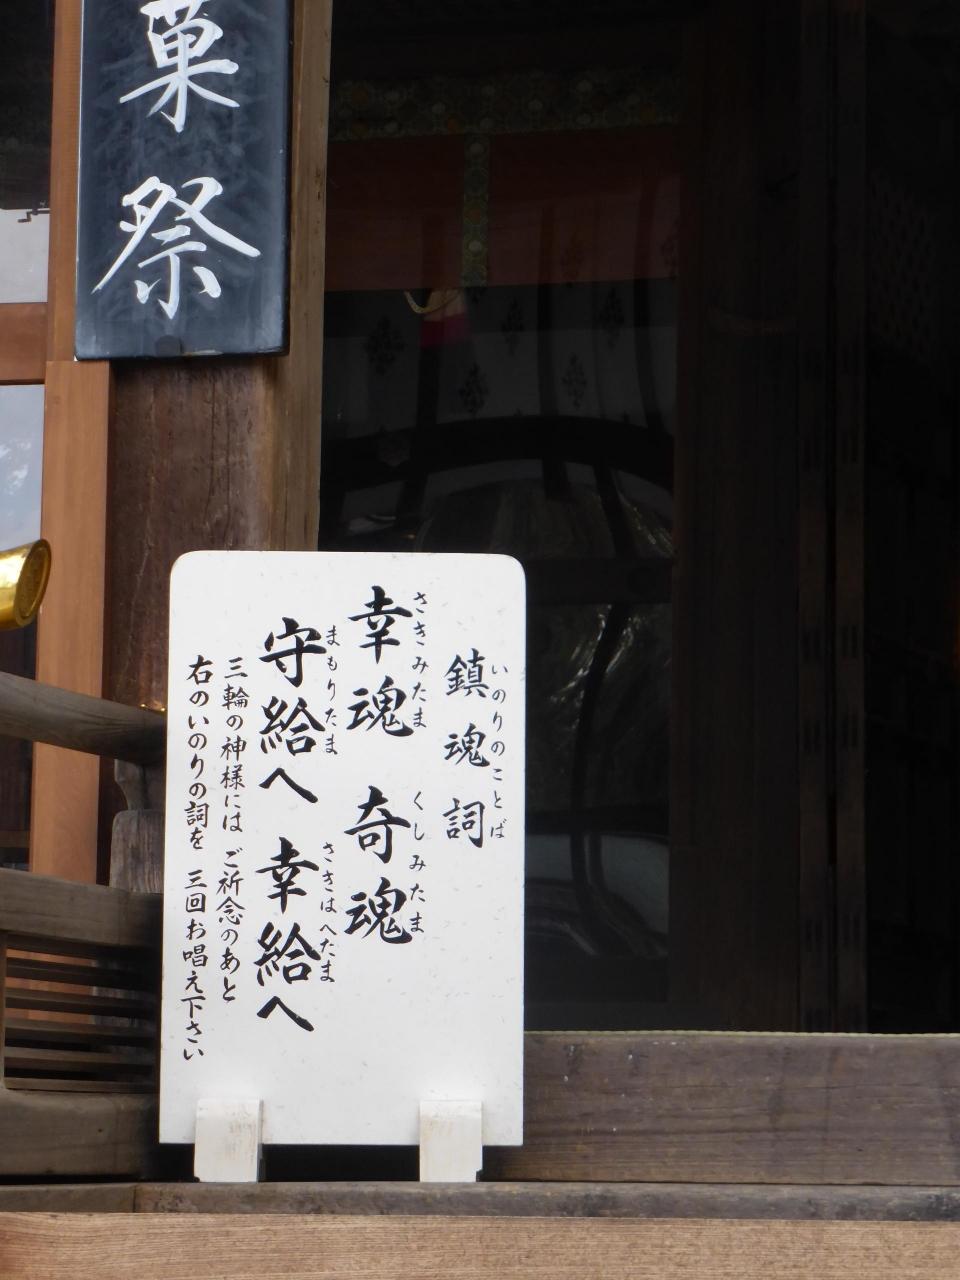 菓祭
いのりのことば
鎮魂詞
さきみたま くしみたま
幸魂 奇魂
まもりたま さきはへたま
守給へ 幸給へ
三輪の神様には ご祈念のあと
右のいのりの詞を 三回お唱え下さい